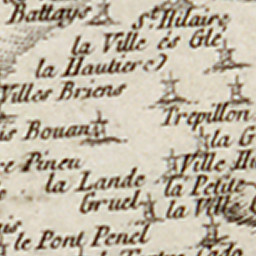 Battays St Hilaire
la Ville és Gle
la Hautiere
Villes Briens
Trepillon
is Bouan
la G
re Pineu Ville Hu
la Lande la Petite
Gruel la Ville
le Pont Penel